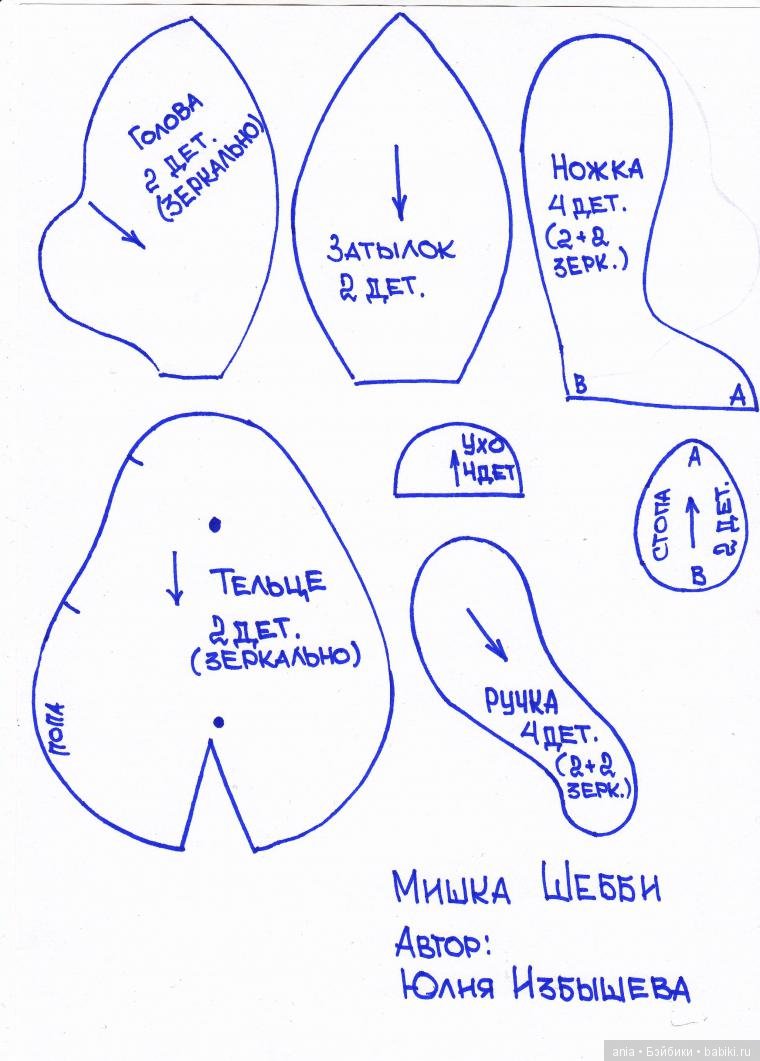 Голова
2 дет.
(зеркально)
Затылок
2 дет.
Ножка
4 дет.
(2+2
зерк.)
В
А
Ухо
4 дет
А
Стопа
2 дет.
В
Тельце
2 дет.
(зеркально)
попа
Ручка
4 дет.
(2+2
зерк.)
Мишка Шебби
Автор:
Юлия Избышева
ania • Бэйбики • babiki.ru